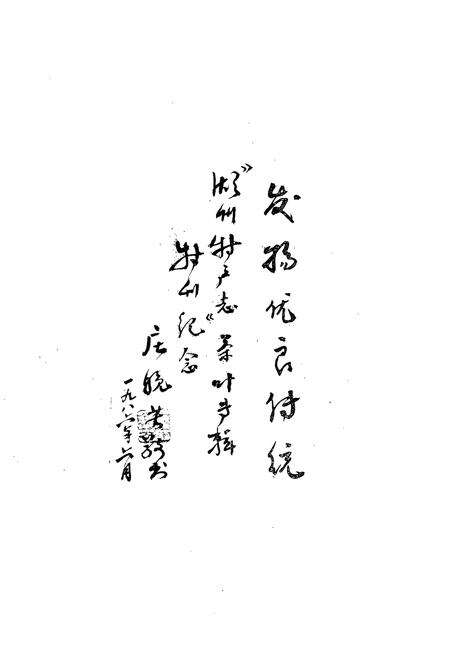 发扬优良传统
《湖州特产志》茶叶专辑
特刊纪念
庄晚芳题书
一九八六年六月